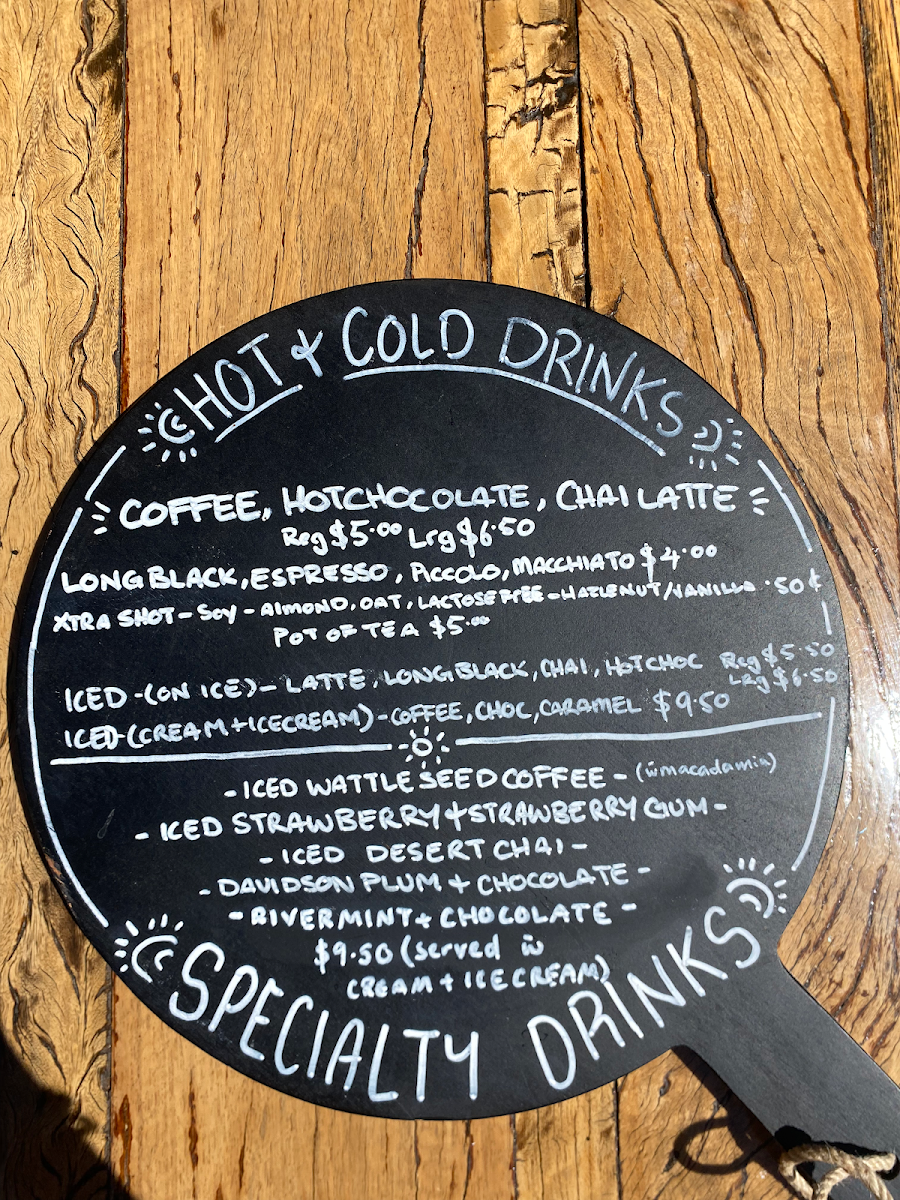 HOT & COLD DRINKS
COFFEE, HOTCHOCOLATE, CHAI LATTE
Reg $5.00 Lrg $6.50
LONG BLACK, ESPRESSO, PICCOLO, MACCHIATO $4.00
XTRA SHOT - SOY - ALMOND, OAT, LACTOSE FREE - HAZLENUT/VANILLA .50¢
POT OF TEA $5.00
ICED - (ON ICE) - LATTE, LONG BLACK, CHAI, HOTCHOC Reg $5.50
Lrg $6.50
ICED - (CREAM + ICECREAM) - COFFEE, CHOC, CARAMEL $9.50
- ICED WATTLE SEED COFFEE - (w̄ macadamia)
- ICED STRAWBERRY + STRAWBERRY GUM -
- ICED DESERT CHAI -
- DAVIDSON PLUM + CHOCOLATE -
- RIVERMINT + CHOCOLATE -
$9.50 (served w̄
CREAM + ICE CREAM)
SPECIALTY DRINKS